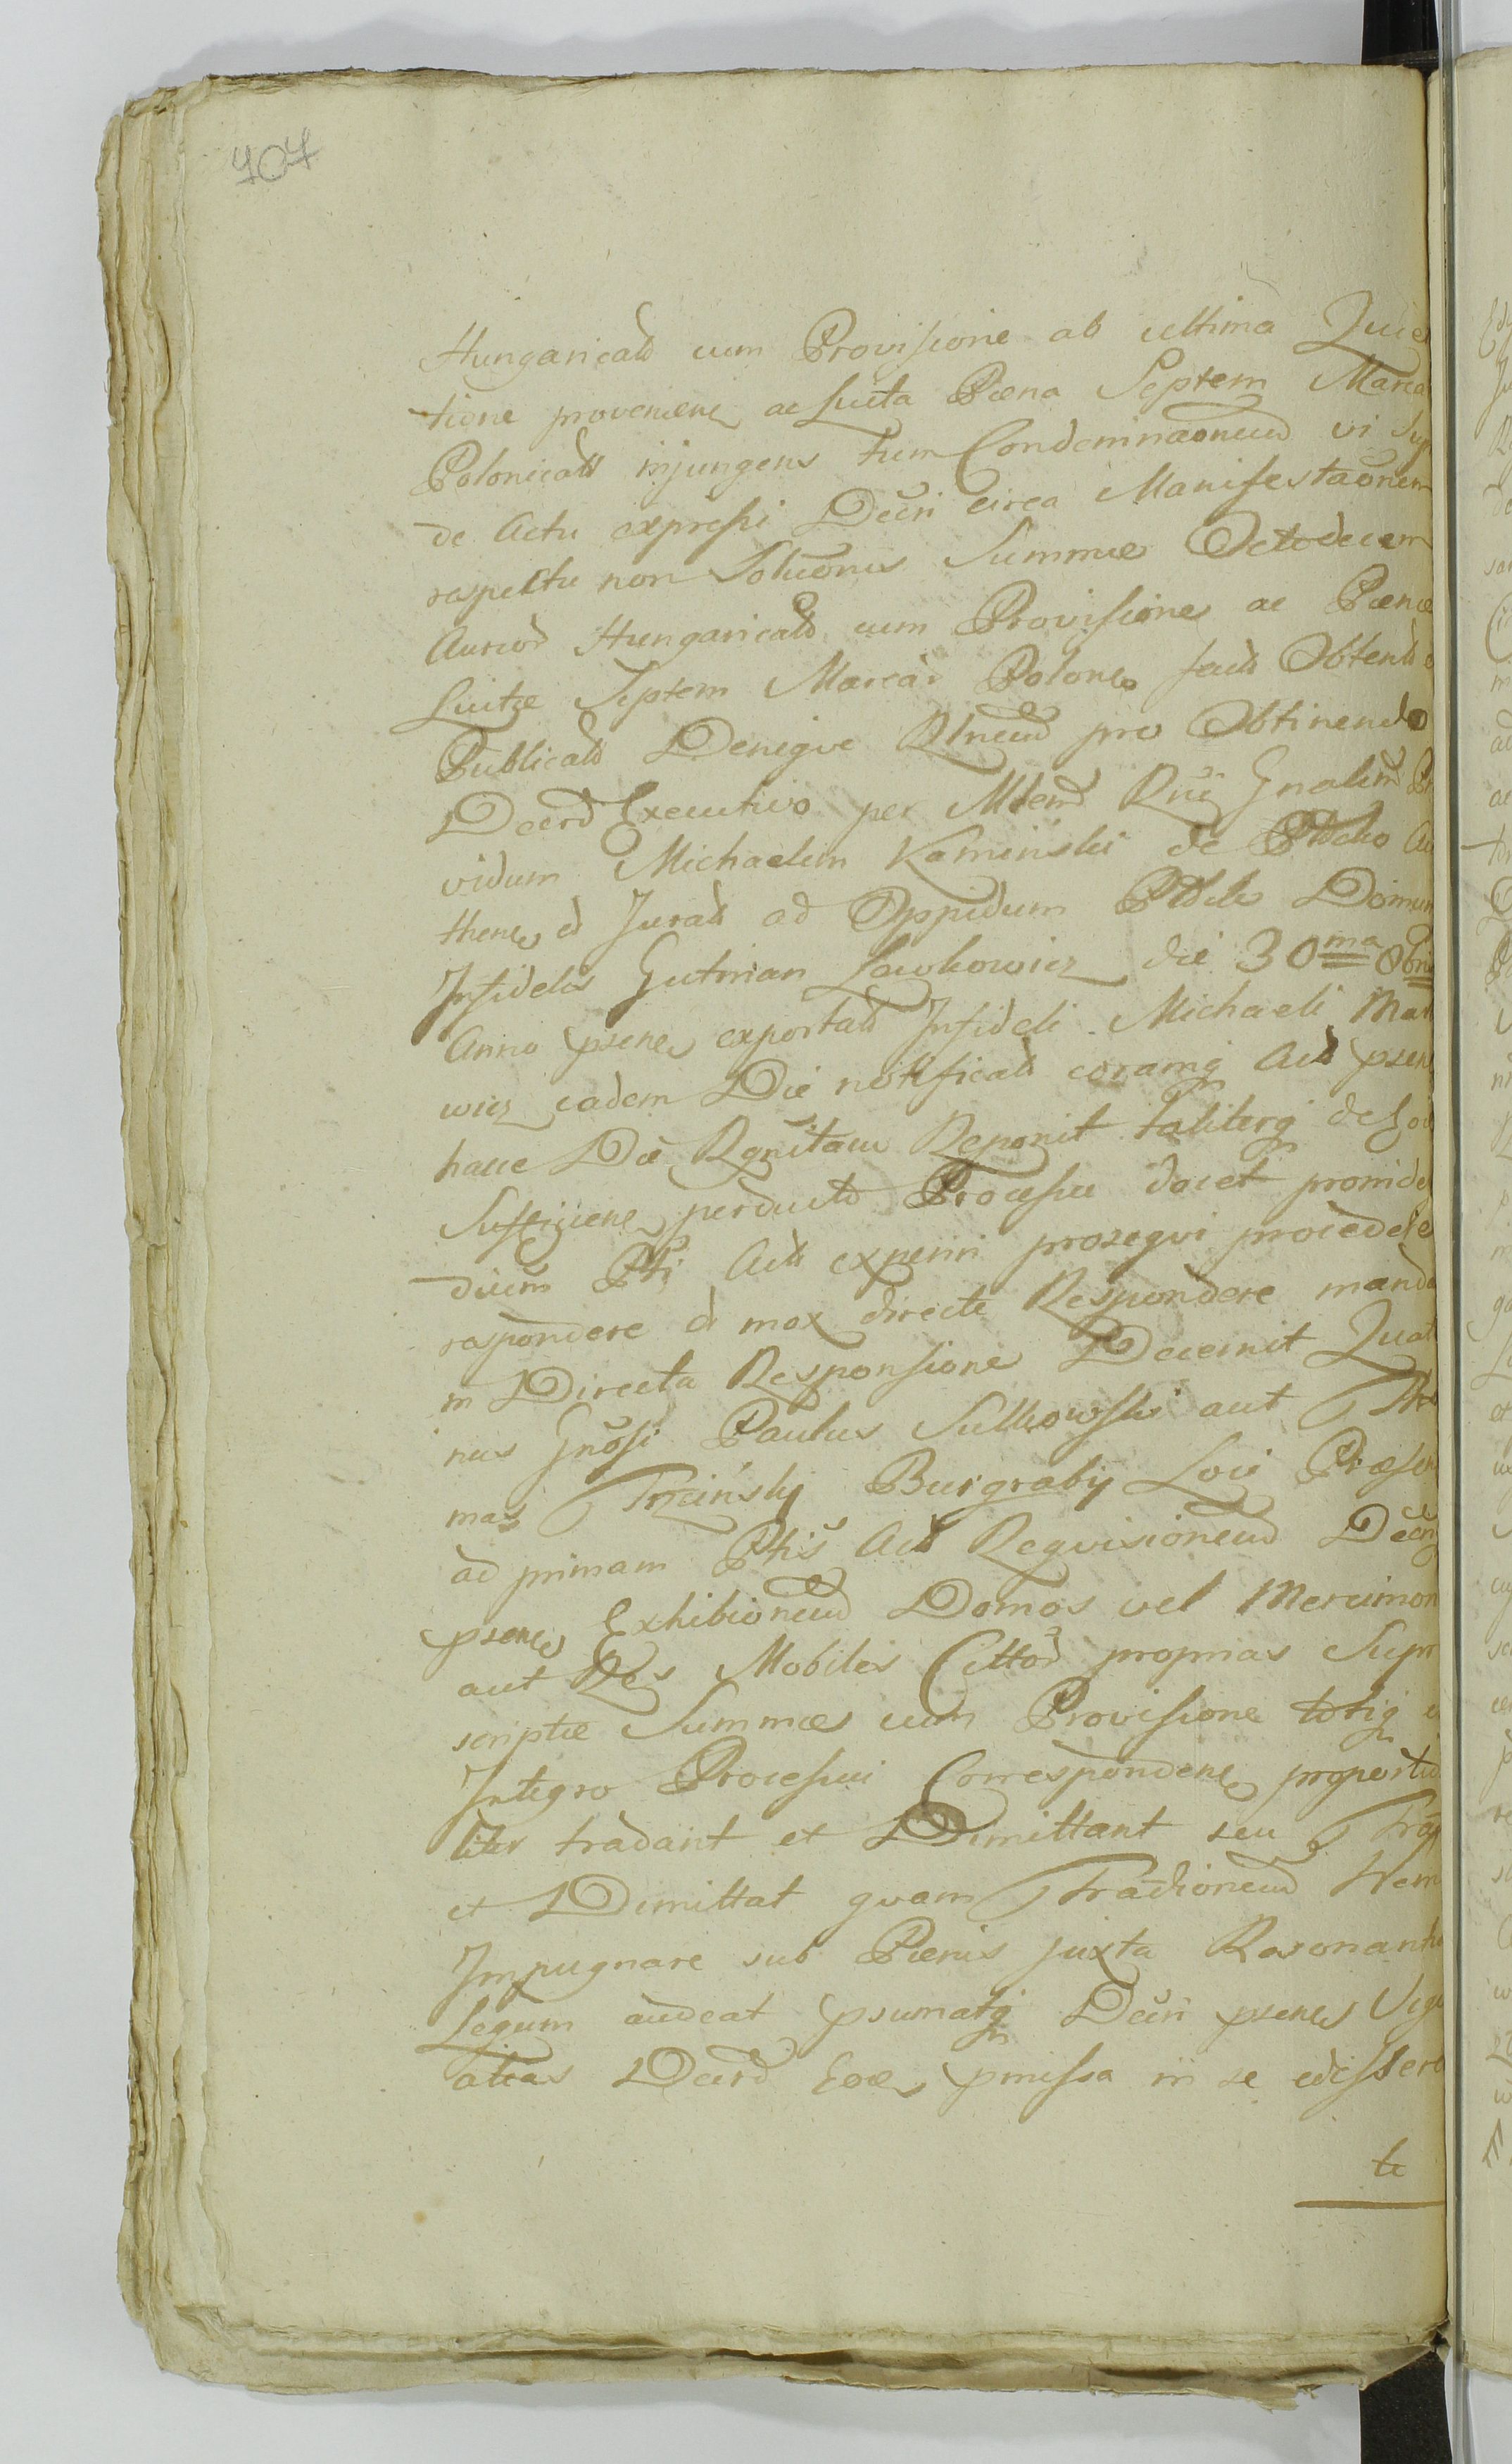 407
Hungaricald cum Provisione ab ultima Quie
tione provenien ac Luita Pæna Septem Marca
Polonicald injungens tum Condemnaōneud vi Sup
de Actu expressi Decri circa Manifestaōnem
respectu non Soluōnis Summæ Octodecem
Aureor Hungaricald cum Provisione ac Pæna
Luitæ Septem Marcar Polon fact Obtent
Publicald Denique Rlneud pro Obtinendo
Decrd Executivo per Mtend Rnĩ Gnalem Pr
vidum Michaelem Kaminski de
then et Jurald ad Oppidum Domum
Infidelis Gutman Lawkowicz die 30ma Obris
Anno psene exportald Infideli Michaeli Mar
wicz eadem Die notificald coramq Act psen
hacce Die Reponit taliterq de
Sufficiene perducto Processu docet proinde
dicem Pti Act experiri prosequi procedere
respondere et mox directe Respondere manda
in Directa Responsione Decernit Quat
nus Gnosi Paulus Sulkowski aut Tho
mas Trzciński Burgrabij Loci Præsen
ad primam Ptis Act Requisioneud Decri
psene Exhibioneud Domos vel Mercimon
aut Res Mobiles Cittor proprias Supra
scriptæ Summæ cum Provisione totiq
Integro Processui Correspondene proportio
liter tradant et Dimittant seu Trad
et Dimittat quam Tradioneud Nem
Impugnare sub Pænis juxta Rasonantia
Legum audeat psumatq Decri psene Vig
alias Decrd Exe pmissa in se edissere
te